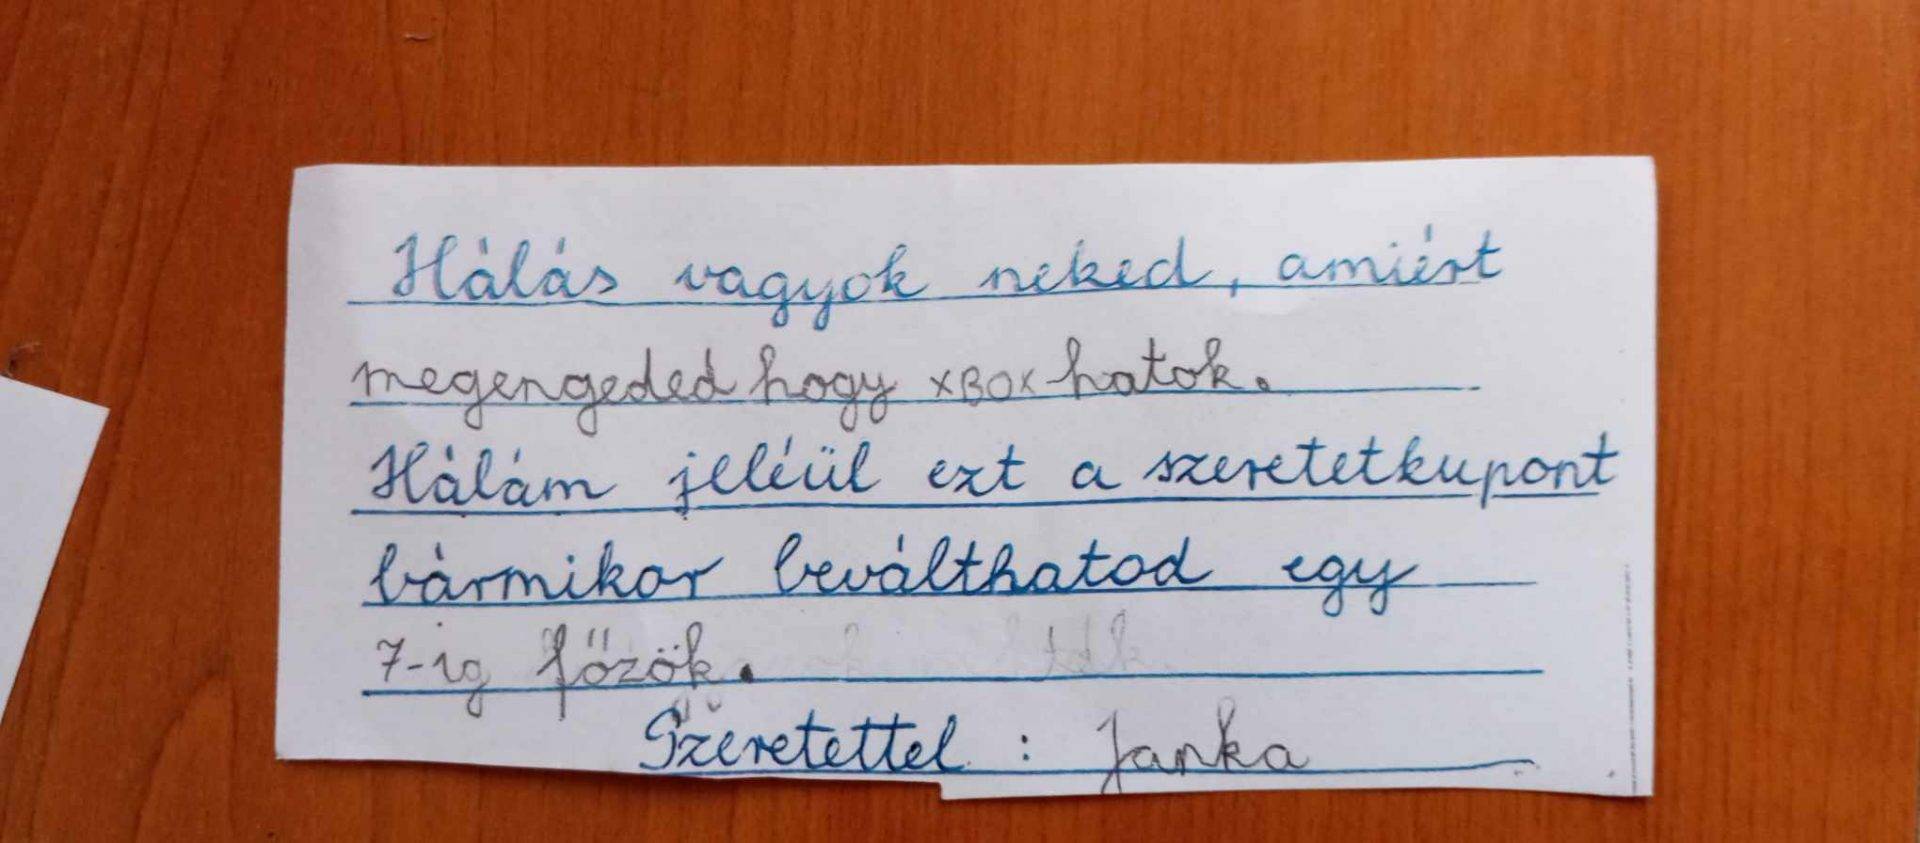 Hálás vagyok neked, amiért
megengeded hogy XBOX-hatok.
Hálám jeléül ezt a szeretetkupont
bármikor beválthatod egy
7-ig főzök.
Szeretettel : Janka